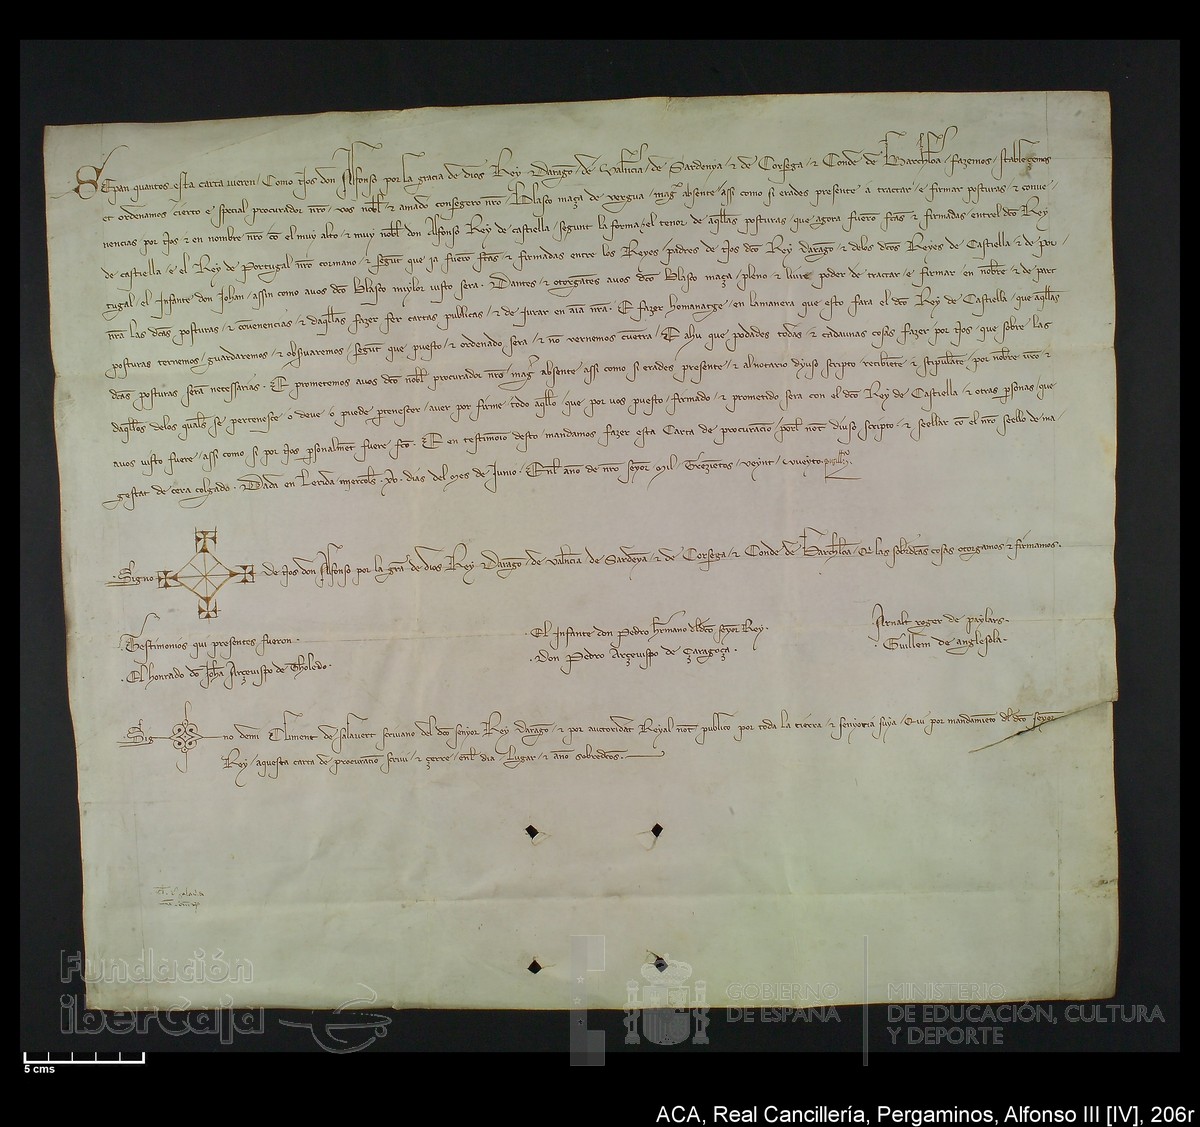 Sepan quantos esta carta vieren / Como Nos don Alfonso por la gracia de dios Rey Darago de Valencia / de Sardenya / & de Corsega / & Conde de Barchlona / fazemos / stablezemos
et ordenamos cierto e special procurador nro / vos nobl & amado consegero nro / Blasco maça de vergua / mag absente / assi como si erades presente a tractar / e firmar posturas / & conue
nencias por Nos & en nombre nro co el muy alto & muy nobl don Alfonso Rey de castiella / segunt la forma / & el tenor de aqllas posturas / que agora fuero fctas & firmadas entrel dco Rey
de castiella / e el Rey de Portugal nro cormano / & segut que ia fuero fctas & firmadas entre los Reyes / padres de Nos dco Rey darago & delos dcos Reyes de Castiella & de por
tugal / el Infante don Johan / assin como auos dco Blasco muylor visto sera . Dantes & otorgates auos dco Blasco maça / pleno & lliure poder de tractar / e firmar en nobre & de part
nra las dcas posturas / & couenencias / & daqllas fazer fer cartas publicas / & de jurar en aia nra . E fazer homanatge / en lamanera que esto fara el dco Rey de Castiella / que aqllas
posturas ternemos / guardaremos / & obsuaremos / segut que puesto / & ordenado sera / & no vernemos cuetra / E ahu que podades todas / & cadaunas cosas fazer por Nos / que sobre las
dcas posturas sera necessarias . E prometemos auos dco nobl procurador nro mag absente / assi como si erades presente / & al notario diuso scripto recibiete & stipulate / por nobre vro &
daqllos delos quals se pertenesce o deue / o puede ptenescer / auer por firme / todo aqllo que por vos puesto / firmado / & prometido sera con el dco Rey de Castiella / & otras psonas / que
auos visto fuere / assi como si por Nos psonalmet fuere fco . E en testimoio desto / mandamos fazer esta Carta de procuracio / porel not diuso scripto / & seellar co el nro seello de ma
gestat de cera colgado . Dada en Lerida miercols . xv . dias del mes de Junio / Enl ano de nro seyor Mil / Trezietos / veynt / vueyto
Signo de Nos don Alfonso por la gra de dios Rey Darago / de valecia de Sardeya / & de Corsega / & Conde de Barchloa / Qi las sobrdcas cosas otorgamos & firmamos .
Testimonios qui presentes fueron .
El honrado do Joha Arçeuispo de Tholedo .
. El Infante don Pedro hrmano dl dco seyor Rey .
. Don Pedro Arçeuispo de Çaragoça .
Arnalt roger de paylars .
. Guillem de anglesola .
Sig no demi Climent de salauert scriuano del dco senyor Rey darago / & por auctoridat Reyal not publico por toda la tierra & senyoria suya / Qui por mandamieto dl dco seyor
Rey / aquesta carta de procuracio scriui / & çerre / enl dia / Lugar / & ano sobredcos .
Fundación
iberCaja
GOBIERNO
DE ESPAÑA
MINISTERIO
DE EDUCACIÓN, CULTURA
Y DEPORTE
5 cms
ACA, Real Cancillería, Pergaminos, Alfonso III [IV], 206r